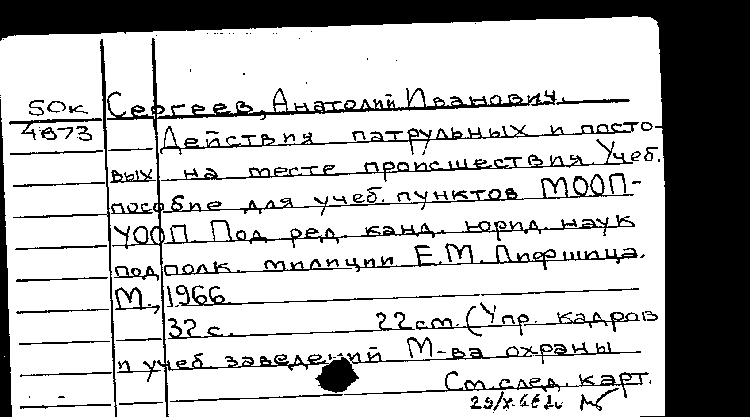 50к Сергеев, Анатолий Иванович.
4873 Действия патрульных и посто-
вых на месте происшествия. Учеб.
пособие для учеб. пунктов МООП-
УООП. Под ред. канд. юрид. наук
подполк. милиции Е.М. Лифшица.
М., 1966.
32 с. 22 см. (Упр. кадров
и учеб. заведений М-ва охраны
См. след. карт.